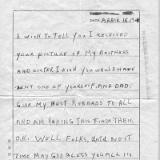 DATE APRIL 18, 19
I WISH TO TELL YOU I RECEIVED
YOUR PICTURE OF MY BROTHERS
AND SISTER I WISH YOU WOULD HAVE
SENT ONE OF YOURSELF AND DAD
GIVE MY BEST REGARDS TO ALL
AND AM HOPING THIS FINDS THEM
O.K. WELL FOLKS, UNTIL NEXT
TIME MAY GOD BLESS YOU ALL IS